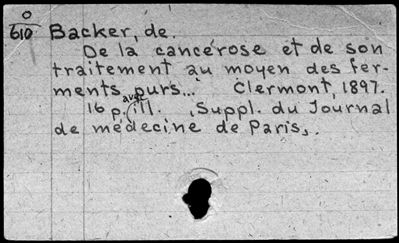 O
610 Backer, de.
De la cancérose et de son
traitement au moyen des fer-
ments purs... Clermont, 1897.
16 p. avec ill. (Suppl. du Journal
de médecine de Paris).